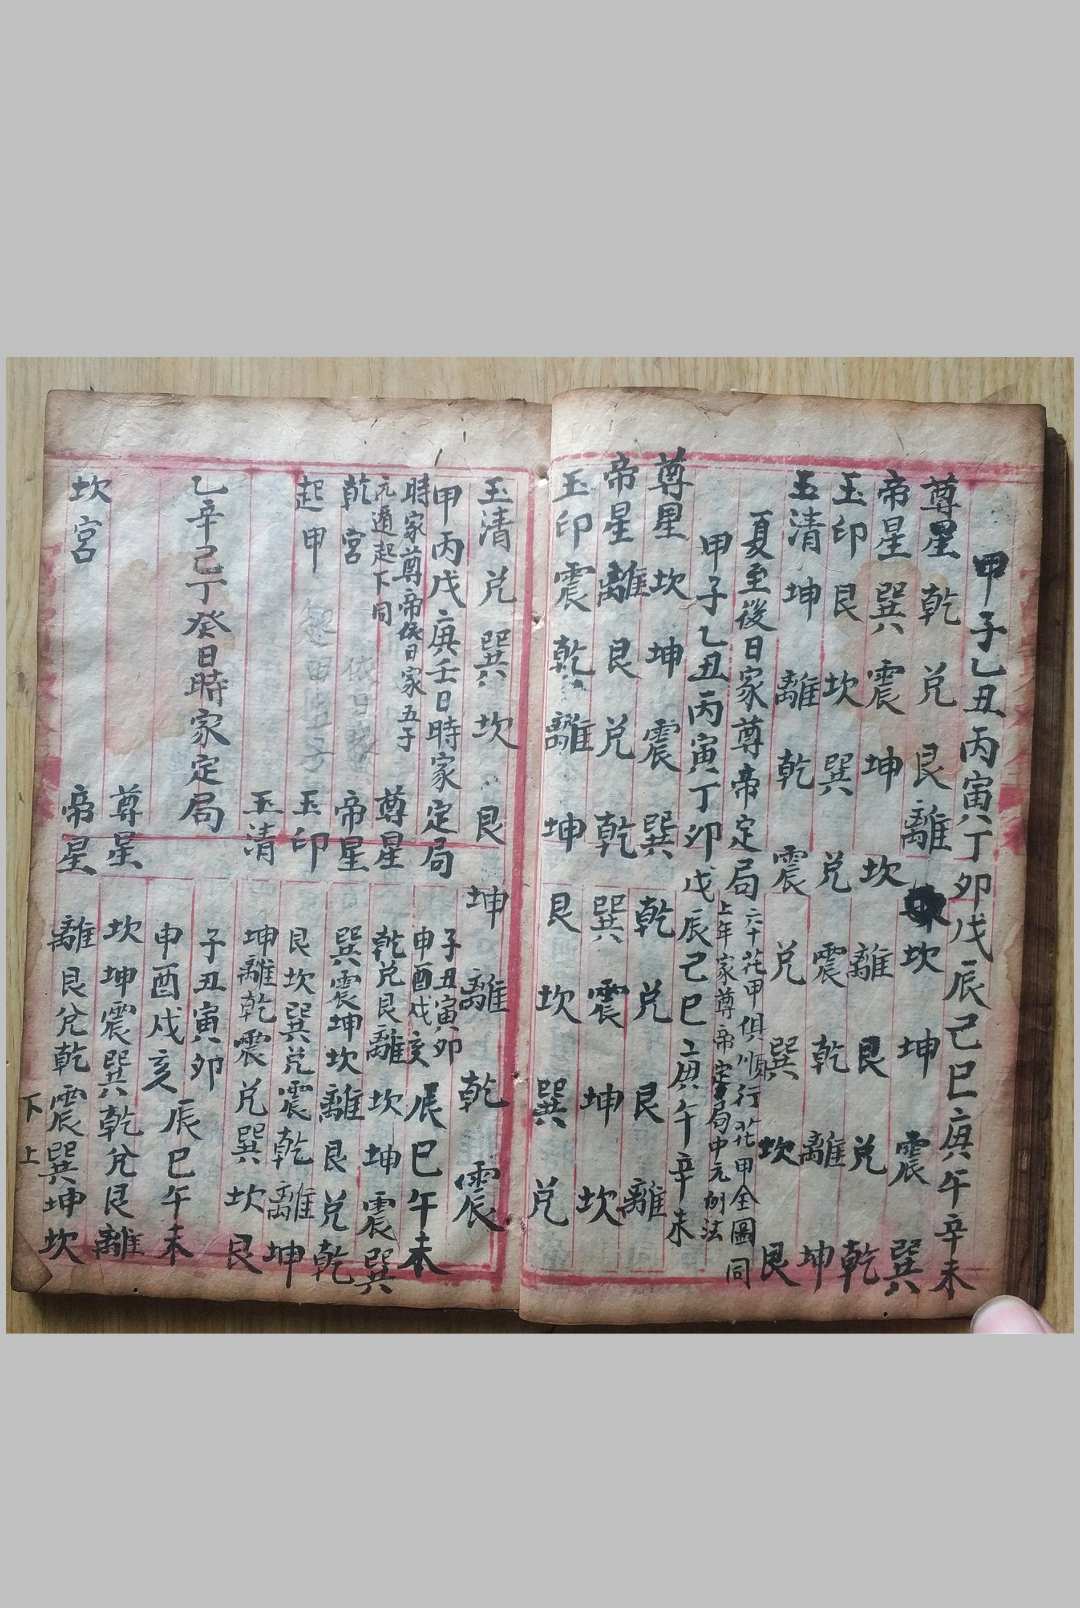 甲子乙丑丙寅丁卯戊辰己巳庚午辛未
尊星乾兌艮離坎坤震巽
帝星巽震坤坎離艮兌乾
玉印艮坎巽兌震乾離坤
玉清坤離乾震兌巽坎艮
夏至後日家尊帝定局
六十花甲俱順行花甲全圖同
上年家尊帝定局中元例法
甲子乙丑丙寅丁卯戊辰己巳庚午辛未
尊星坎坤震巽乾兌艮離
帝星離艮兌乾巽震坤坎
玉印震乾離坤艮坎巽兌
玉清兌巽坎艮坤離乾震
甲丙戊庚壬日時家定局
子丑寅卯
申酉戌亥
辰巳午未
時家尊帝依日家五子
元遁起下同
尊星乾兌艮離坎坤震巽
乾宮
帝星巽震坤坎離艮兌乾
起甲
玉印艮坎巽兌震乾離坤
玉清坤離乾震兌巽坎艮
乙辛己丁癸日時家定局
子丑寅卯
申酉戌亥
辰巳午未
尊星坎坤震巽乾兌艮離
坎宮
帝星離艮兌乾震巽坤坎
下上